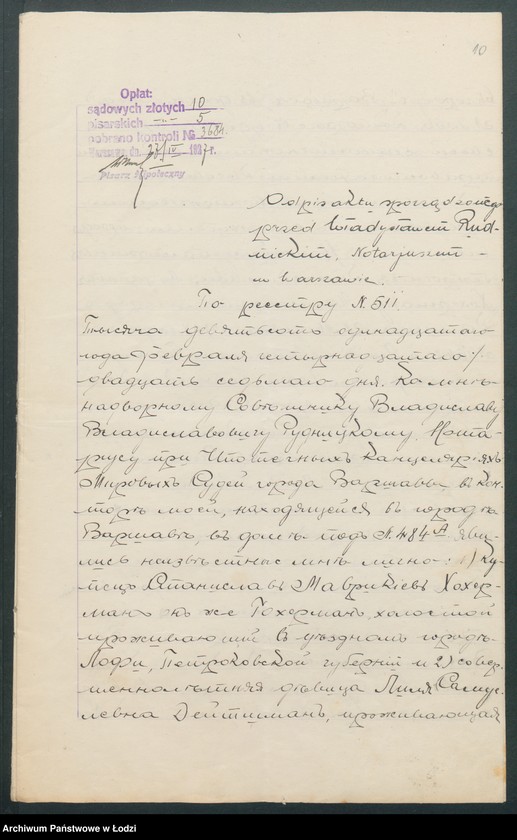 10
Opłat:
sądowych złotych 10
pisarskich 5
pobrano kontroli № 3684
Warszawa, dn. 23/IV 1937
Pisarz Hipoteczny
Odpis aktu sporządzonego
przed Władysławem Rud-
nickim, Notarjuszem -
w Warszawie.
По реестру N. 511.
Тысяча девятьсотъ одинадцатаго
года Февраля четырнадцатаго /
двадцать седьмаго дня. Ко мнѣ
надворному Совѣтнику Владиславу
Владиславовичу Рудницкому, Нота-
ріусу при Ипотечныхъ Канцеляріяхъ
Мировыхъ Судей города Варшавы въ кон-
торѣ моей, находящейся въ городѣ
Варшавѣ, въ домѣ подъ N. 484 A яви-
лись неизвѣстные мнѣ лично: 1) Ку-
пецъ Станиславъ Маврикіевъ Хохер-
манъ онъ же Гохерманъ, холостой
проживающій въ уѣздномъ городѣ
Лодзи, Петроковской губерніи и 2) совер-
шеннолѣтняя дѣвица Лилія Самуи-
левна Дейтшманъ, проживающая
Archiwum Państwowe w Łodzi